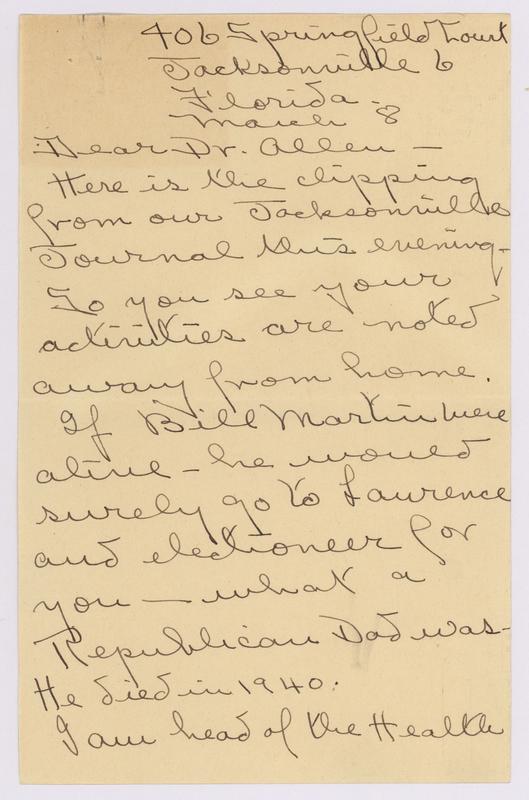 406 Springfield Court
Jacksonville 6
Florida -
March 8
Dear Dr. Allen -
Here is the clipping
from our Jacksonville
Journal this evening -
So you see your
activities are noted
away from home.
If Bill Martin were
alive - he would
surely go to Lawrence
and electioneer for
you - what a
Republican Dad was -
He died in 1940.
I am head of the Health